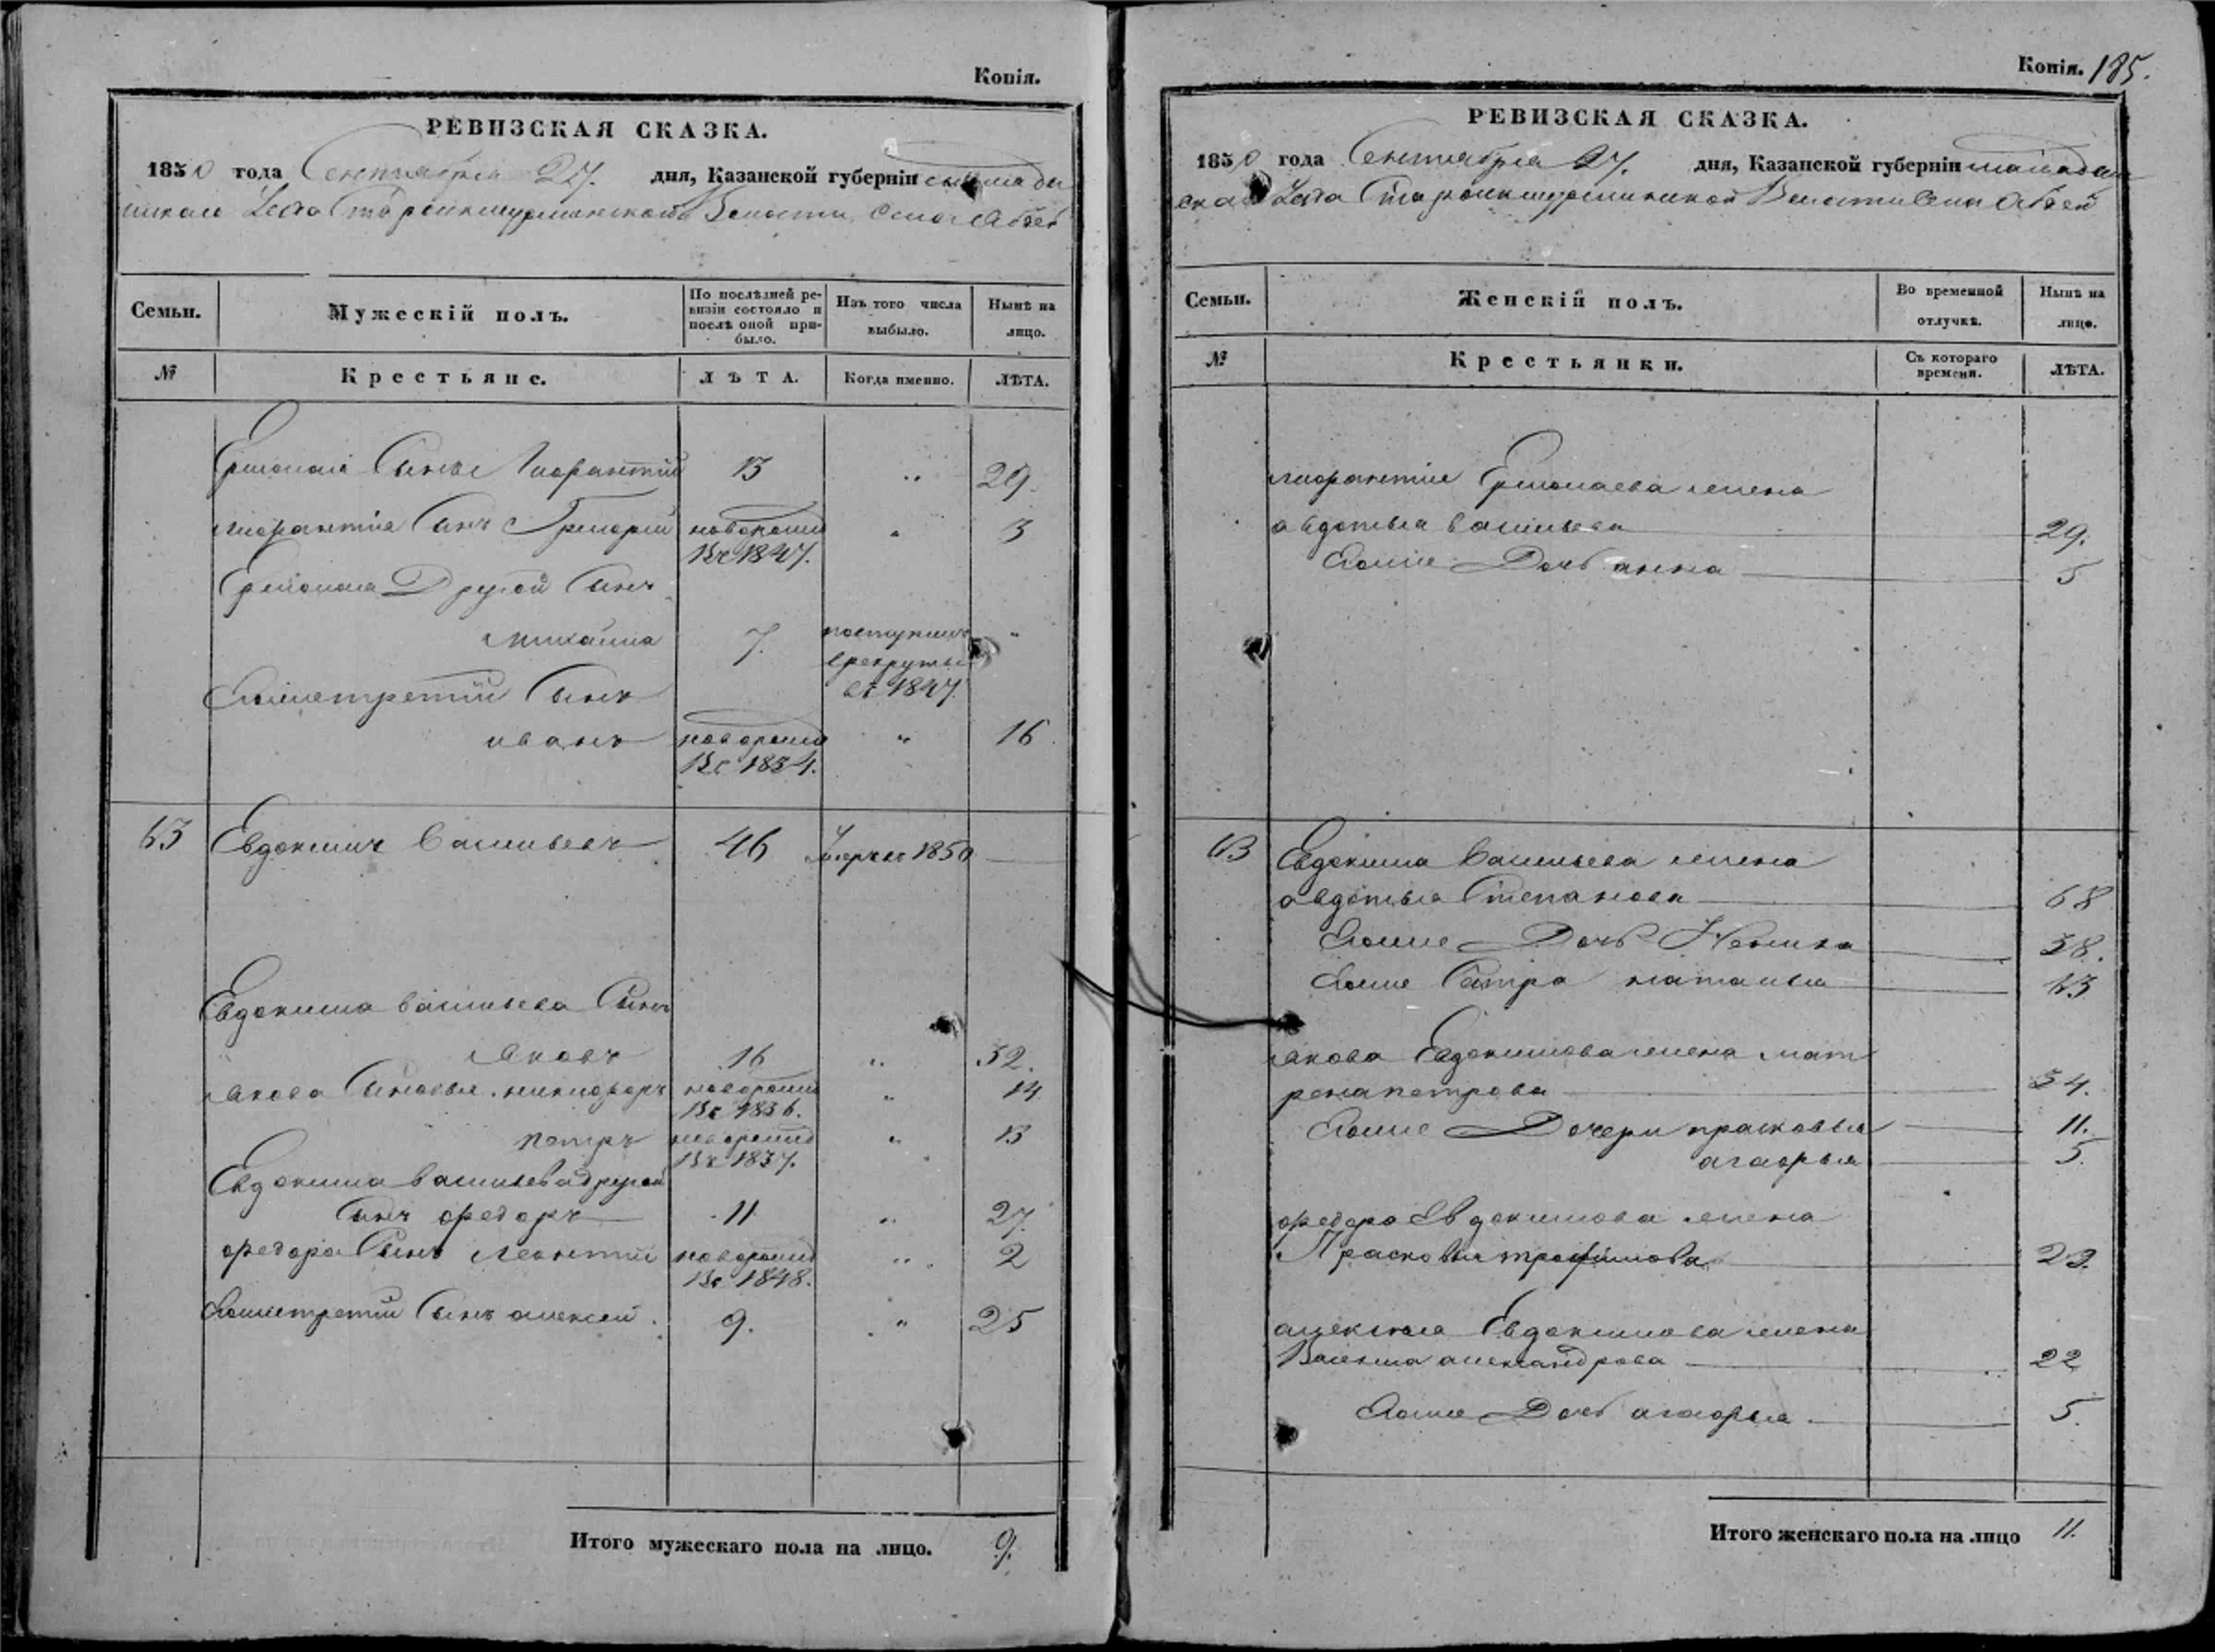 Копія.
РЕВИЗСКАЯ СКАЗКА.
1850 года Сентября 27. дня, Казанской губерніи
Уезда Волости Села
Семьи.
Мужескій полъ.
По послѣдней ре-
визіи состояло и
послѣ оной при-
было.
Изъ того числа
выбыло.
Нынѣ на
лицо.
№
Крестьяне.
ЛѢТА.
Когда именно.
ЛѢТА.
Сынъ 13 " 29.
Сынъ Григорій новорожд " 3
1847.
Другой Сынъ
Михаила 7. поступилъ "
врекруты
въ 1847.
Егоже третій Сынъ
иванъ новорожд " 16
1834.
63 Евдокимъ Васильевъ 46 Умеръ въ 1850
Евдокима васильева Сынъ
Яковъ 16 " 32.
Якова Сыновья никифоръ новорожд " 14
1836.
петръ новорожд " 13
1837.
Евдокима васильева другой
Сынъ федоръ 11 " 27.
федора Сынъ леонтій новорожд " 2
1848.
Егоже третій Сынъ алексей. 9. " 25
Итого мужескаго пола на лицо. 9.
Копія. 185.
РЕВИЗСКАЯ СКАЗКА.
1850 года Сентября 27. дня, Казанской губерніи
Уезда Волости Села
Семьи.
Женскій полъ.
Во временной
отлучкѣ.
Нынѣ на
лицо.
№
Крестьянки.
Съ котораго
времени.
ЛѢТА.
Ермолаева жена
авдотья васильева 29.
Егоже Дочь анна 5
63 Евдокима Васильева жена
авдотья Степанова 68
Егоже Дочь 38.
Егоже Сестра наталья 63
Якова Евдокимова жена мат
рена петрова 34.
Егоже Дочери прасковья 11.
агафья 5.
федора Евдокимова жена
Прасковья трофимова 23.
алексея Евдокимова жена
александрова 22
Егоже Дочь агафья. 5.
Итого женскаго пола на лицо 11.